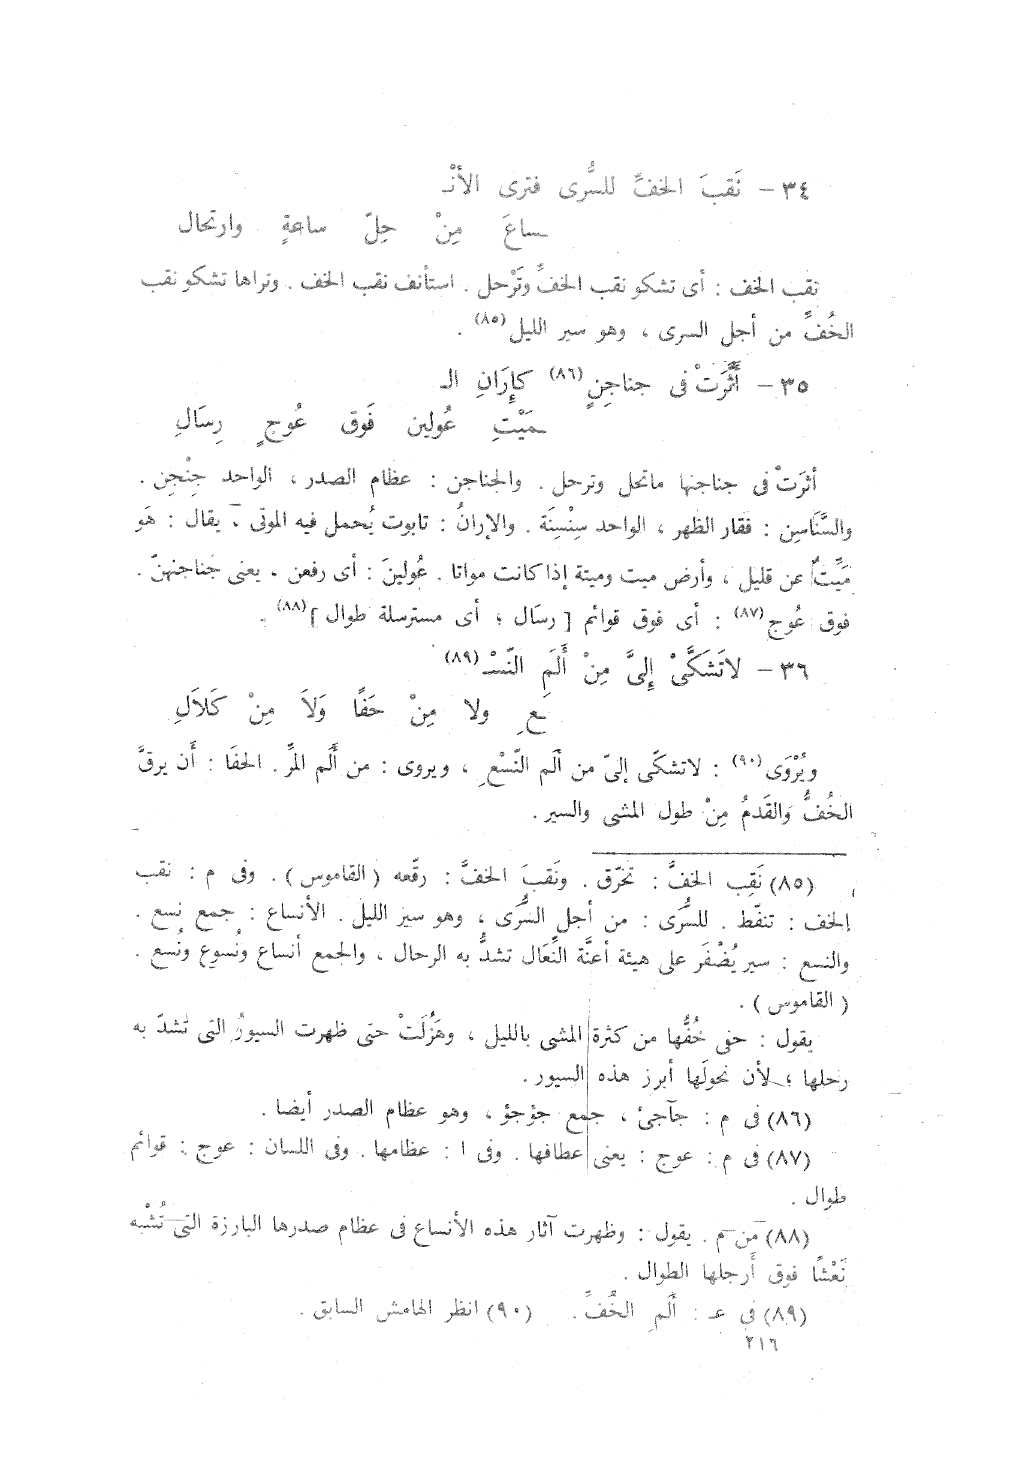 ٣٤ – نَقبَ الخفِّ للسُّرى فترى الأنْـ
ـساعَ مِنْ حِلّ ساعةٍ وارتحال
نقب الخف : أى تشكو نقب الخفِّ وتَرْحل . استأنف نقب الخف . وتراها تشكو نقب
الخُفِّ من أجل السرى ، وهو سير الليل(٨٥) .
٣٥ – أَثَّرَتْ فى جناجِنٍ(٨٦) كإِرَانِ الـ
ـمَيْتِ عُولين فَوق عُوجٍ رِسَالِ
أثرَتْ فى جناجنها ماتحل وترحل . والجناجن : عظام الصدر ، الواحد جِنْجِن .
والسَّنَاسِن : فقار الظهر ، الواحد سِنْسِنَة . والإرانُ : تابوت يُحمل فيه الموتى ، يقال : هَو
مَيِّتٌ عن قليل ، وأرض ميت وميتة إذا كانت مواتا . عُولينَ : أى رفعن . يعنى جَناجنهنّ .
فوق عُوج(٨٧) : أى فوق قوائم [ رسَال ؛ أى مسترسلة طوال ](٨٨) .
٣٦ – لاَتَشَكَّىْ إِلىَّ مِنْ أَلَمِ النّسْـ(٨٩)
ـعِ ولا مِنْ حَفًا وَلاَ مِنْ كَلاَلِ
ويُرْوَى(٩٠) : لاتشكّى إلىّ من ألَم النّسْعِ ، ويروى : من أَلَم المَرِّ . الحفَا : أَن يرقَّ
الخُفُّ والقَدمُ مِنْ طول المشى والسير .
(٨٥) نَقِب الخفُّ : تخرّق . ونَقبَ الخفَّ : رقّعه ( القاموس ) . وفى م : نقب
الخف : تنفّط . للسُّرَى : من أجل السُّرَى ، وهو سير الليل . الأنساع : جمع نسع .
والنسع : سير يُضْفَر على هيئة أعنَّة النِّعَال تشدُّ به الرحال ، والجمع أنساع ونُسوع ونُسع .
( القاموس ) .
يقول : حفى خُفُّها من كثرة المشى بالليل ، وهَزُلَتْ حتى ظهرت السيورُ التى تَشدّ به
رحلها ؛ لأن نحولَها أبرز هذه السيور .
(٨٦) فى م : جآجئ ، جمع جؤجؤ ، وهو عظام الصدر أيضا .
(٨٧) فى م : عوج : يعنى عطافها . وفى ا : عظامها . وفى اللسان : عوج : قوائم
طوال .
(٨٨) من م . يقول : وظهرت آثار هذه الأنساع فى عظام صدرها البارزة التى تُشْبه
نَعْشًا فوق أَرجلها الطوال .
(٨٩) فى عـ : ألَمِ الخُفِّ . (٩٠) انظر الهامش السابق .
٢١٦